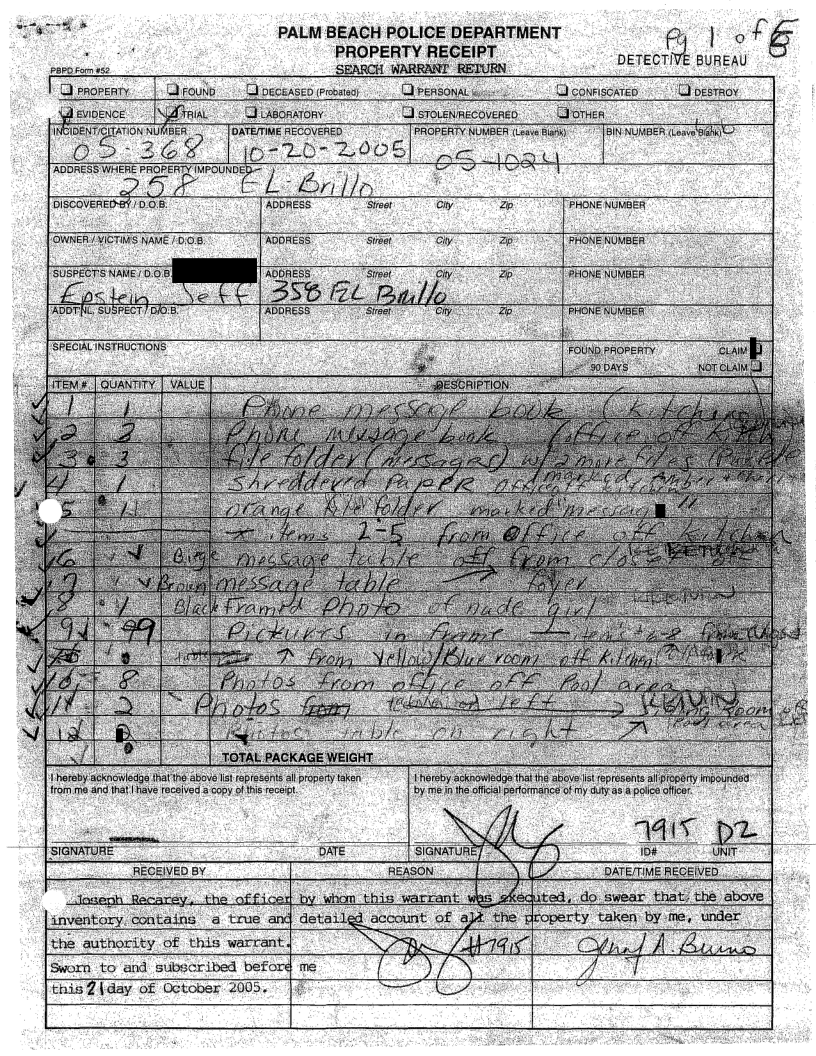 PALM BEACH POLICE DEPARTMENT
PROPERTY RECEIPT
SEARCH WARRANT RETURN
Pg 1 of
DETECTIVE BUREAU
PBPD Form #52
PROPERTY FOUND DECEASED (Probated) PERSONAL CONFISCATED DESTROY
EVIDENCE TRIAL LABORATORY STOLEN/RECOVERED OTHER
INCIDENT/CITATION NUMBER DATE/TIME RECOVERED PROPERTY NUMBER (Leave Blank) BIN NUMBER (Leave Blank)
05-368 10-20-2005 05-1024
ADDRESS WHERE PROPERTY IMPOUNDED
258 EL-Brillo
DISCOVERED BY / D.O.B. ADDRESS Street City Zip PHONE NUMBER
OWNER / VICTIM'S NAME / D.O.B. ADDRESS Street City Zip PHONE NUMBER
SUSPECT'S NAME / D.O.B. ADDRESS Street City Zip PHONE NUMBER
Epstein Jeff 358 EL Brillo
ADDT'NL. SUSPECT / D/O.B. ADDRESS Street City Zip PHONE NUMBER
SPECIAL INSTRUCTIONS
FOUND PROPERTY CLAIM
90 DAYS NOT CLAIM
ITEM # QUANTITY VALUE DESCRIPTION
1 1 Phone message book (Kitchen
2 Phone message book (office off Kitch
3 3 file folder (messages) w/ 2 more files
4 1 Shreddered Paper
5 orange file folder marked "messag "
items 2-5 from office off Kitchen
6 Biege message table from
7 Brown message table foyer
8 1 Black Framed Photo of nude girl
9 Pickurrs in frame items 6-8 from
from Yellow/Blue room off Kitchen
10 8 Photos from office off Pool area
11 2 Photos left
12 Photos table on right
TOTAL PACKAGE WEIGHT
I hereby acknowledge that the above list represents all property taken
from me and that I have received a copy of this receipt.
I hereby acknowledge that the above list represents all property impounded
by me in the official performance of my duty as a police officer.
7915 D2
SIGNATURE DATE SIGNATURE ID# UNIT
RECEIVED BY REASON DATE/TIME RECEIVED
Joseph Recarey, the officer by whom this warrant was executed, do swear that the above
inventory contains a true and detailed account of all the property taken by me, under
the authority of this warrant.
#7915
Sworn to and subscribed before me
this 21 day of October 2005.